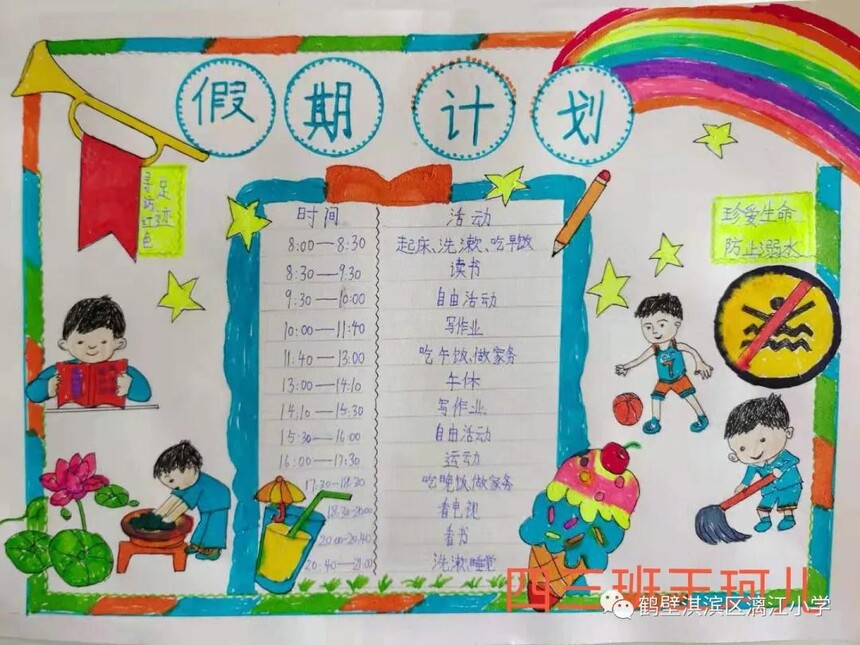 假期计划
寻访红色
足迹
珍爱生命
防止溺水
时间 活动
8:00—8:30 起床、洗漱、吃早饭
8:30—9:30 读书
9:30—10:00 自由活动
10:00—11:40 写作业
11:40—13:00 吃午饭、做家务
13:00—14:10 午休
14:10—15:30 写作业
15:30—16:00 自由活动
16:00—17:30 运动
17:30-18:30 吃晚饭、做家务
18:30-20:00 看电视
20:00-20:40 看书
20:40—21:00 洗漱、睡觉
四三班王珂儿
鹤壁淇滨区漓江小学